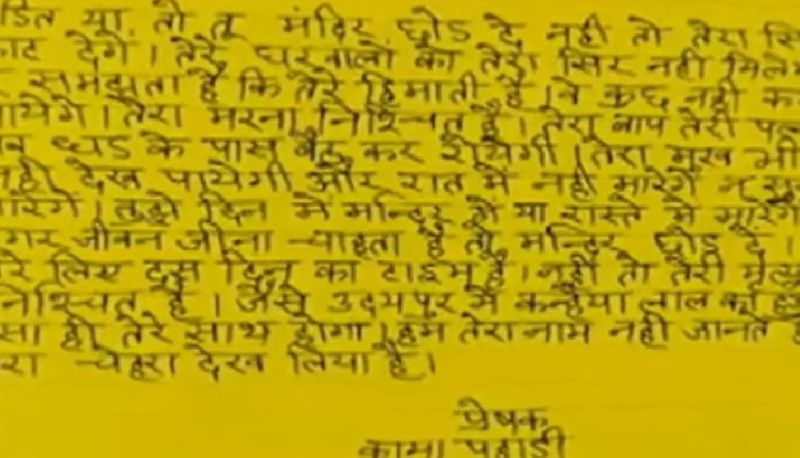 डित या, तो तू मंदिर छोड दे नही तो तेरा सि
काट देगे । तेरे घरवालो को तेरा सिर नही मिले
समझता है कि तेरे हिमाती है । वे कुछ नही क
पायेगे । तेरा मरना निश्चित है । तेरा बाप तेरी प
व धड के पास बैठ कर रोयेगी । तेरा मुख भी
नही देख पायेगी और रात मे नही मारेगें
मारेगे । तुझे दिन मे मन्दिर हो या रास्ते मे मारेगे
गर जीवन जीना चाहता है तो मन्दिर छोड दे ।
रे लिए दस दिन का टाइम है । नही तो तेरी मृत्यु
निश्चित है । जैसे उदयपुर मे कन्हैया लाल का ह
सा ही तेरे साथ होगा । हम तेरा नाम नही जानते
रा चेहरा देख लिया है ।
प्रेषक
कामा पहाडी